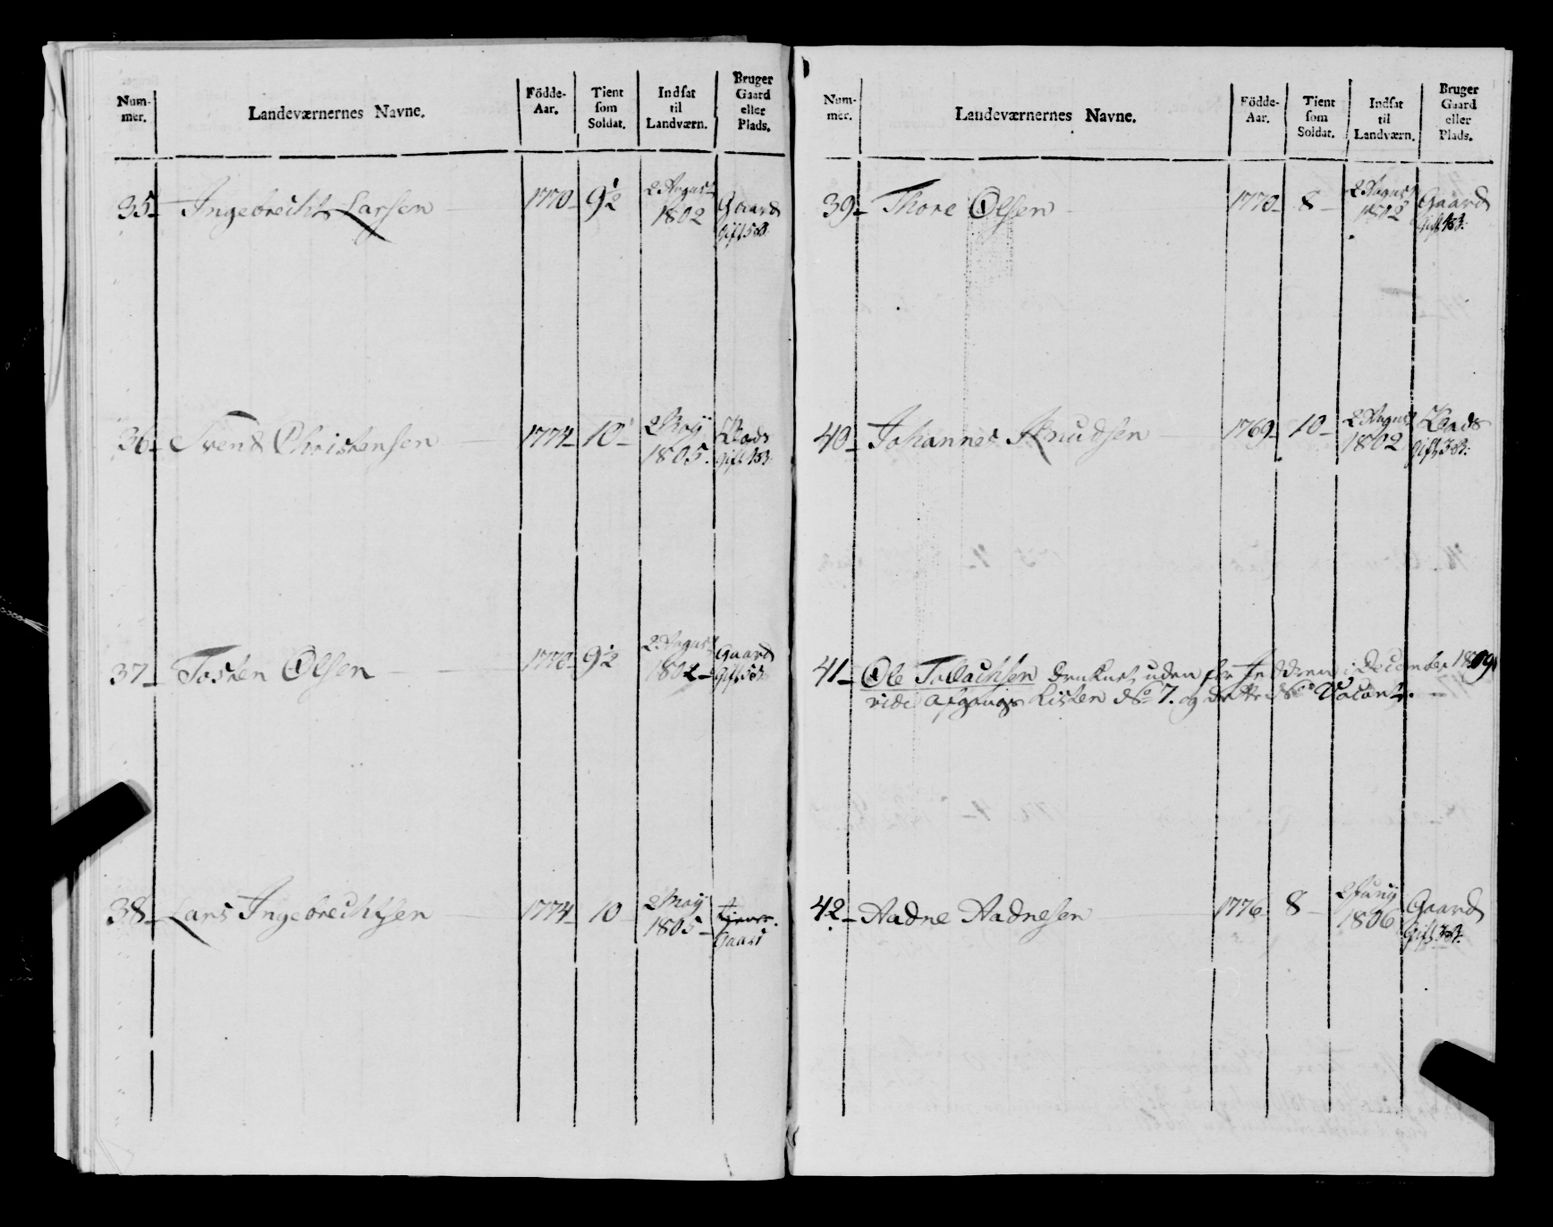 Num-
mer.
Landeværnernes Navne.
Födde-
Aar.
Tient
som
Soldat.
Indsat
til
Landværn.
Bruger
Gaard
eller
Plads.
35 Ingebrecht Larsen 1770 9½ 2 August
1802 Gaard
Gift 5 B:
36 Svend Christensen 1774 10 2 May
1805. Plads
Gift 1 B:
37 Tosten Olsen 1770 9½ 2 August
1802 Gaard
Gift 5 B:
38 Lars Ingebrechtsen 1774 10 2 May
1805 tiener
Gaard
Num-
mer.
Landeværnernes Navne.
Födde-
Aar.
Tient
som
Soldat.
Indsat
til
Landværn.
Bruger
Gaard
eller
Plads.
39 Thore Olsen 1770 8 2 August
1802 Gaard
Gift
40 Johannes Knudsen 1769 10 2 August
1802 Plads
Gift 3 B:
41 Ole Tollachsen druknet uden for Jedderen i December 1809
vide Afgangs Listen No 7. og dette No Vacant.
42 Aadne Aadnesen 1776 8 2 Juny
1806 Gaard
Gift 3 B: